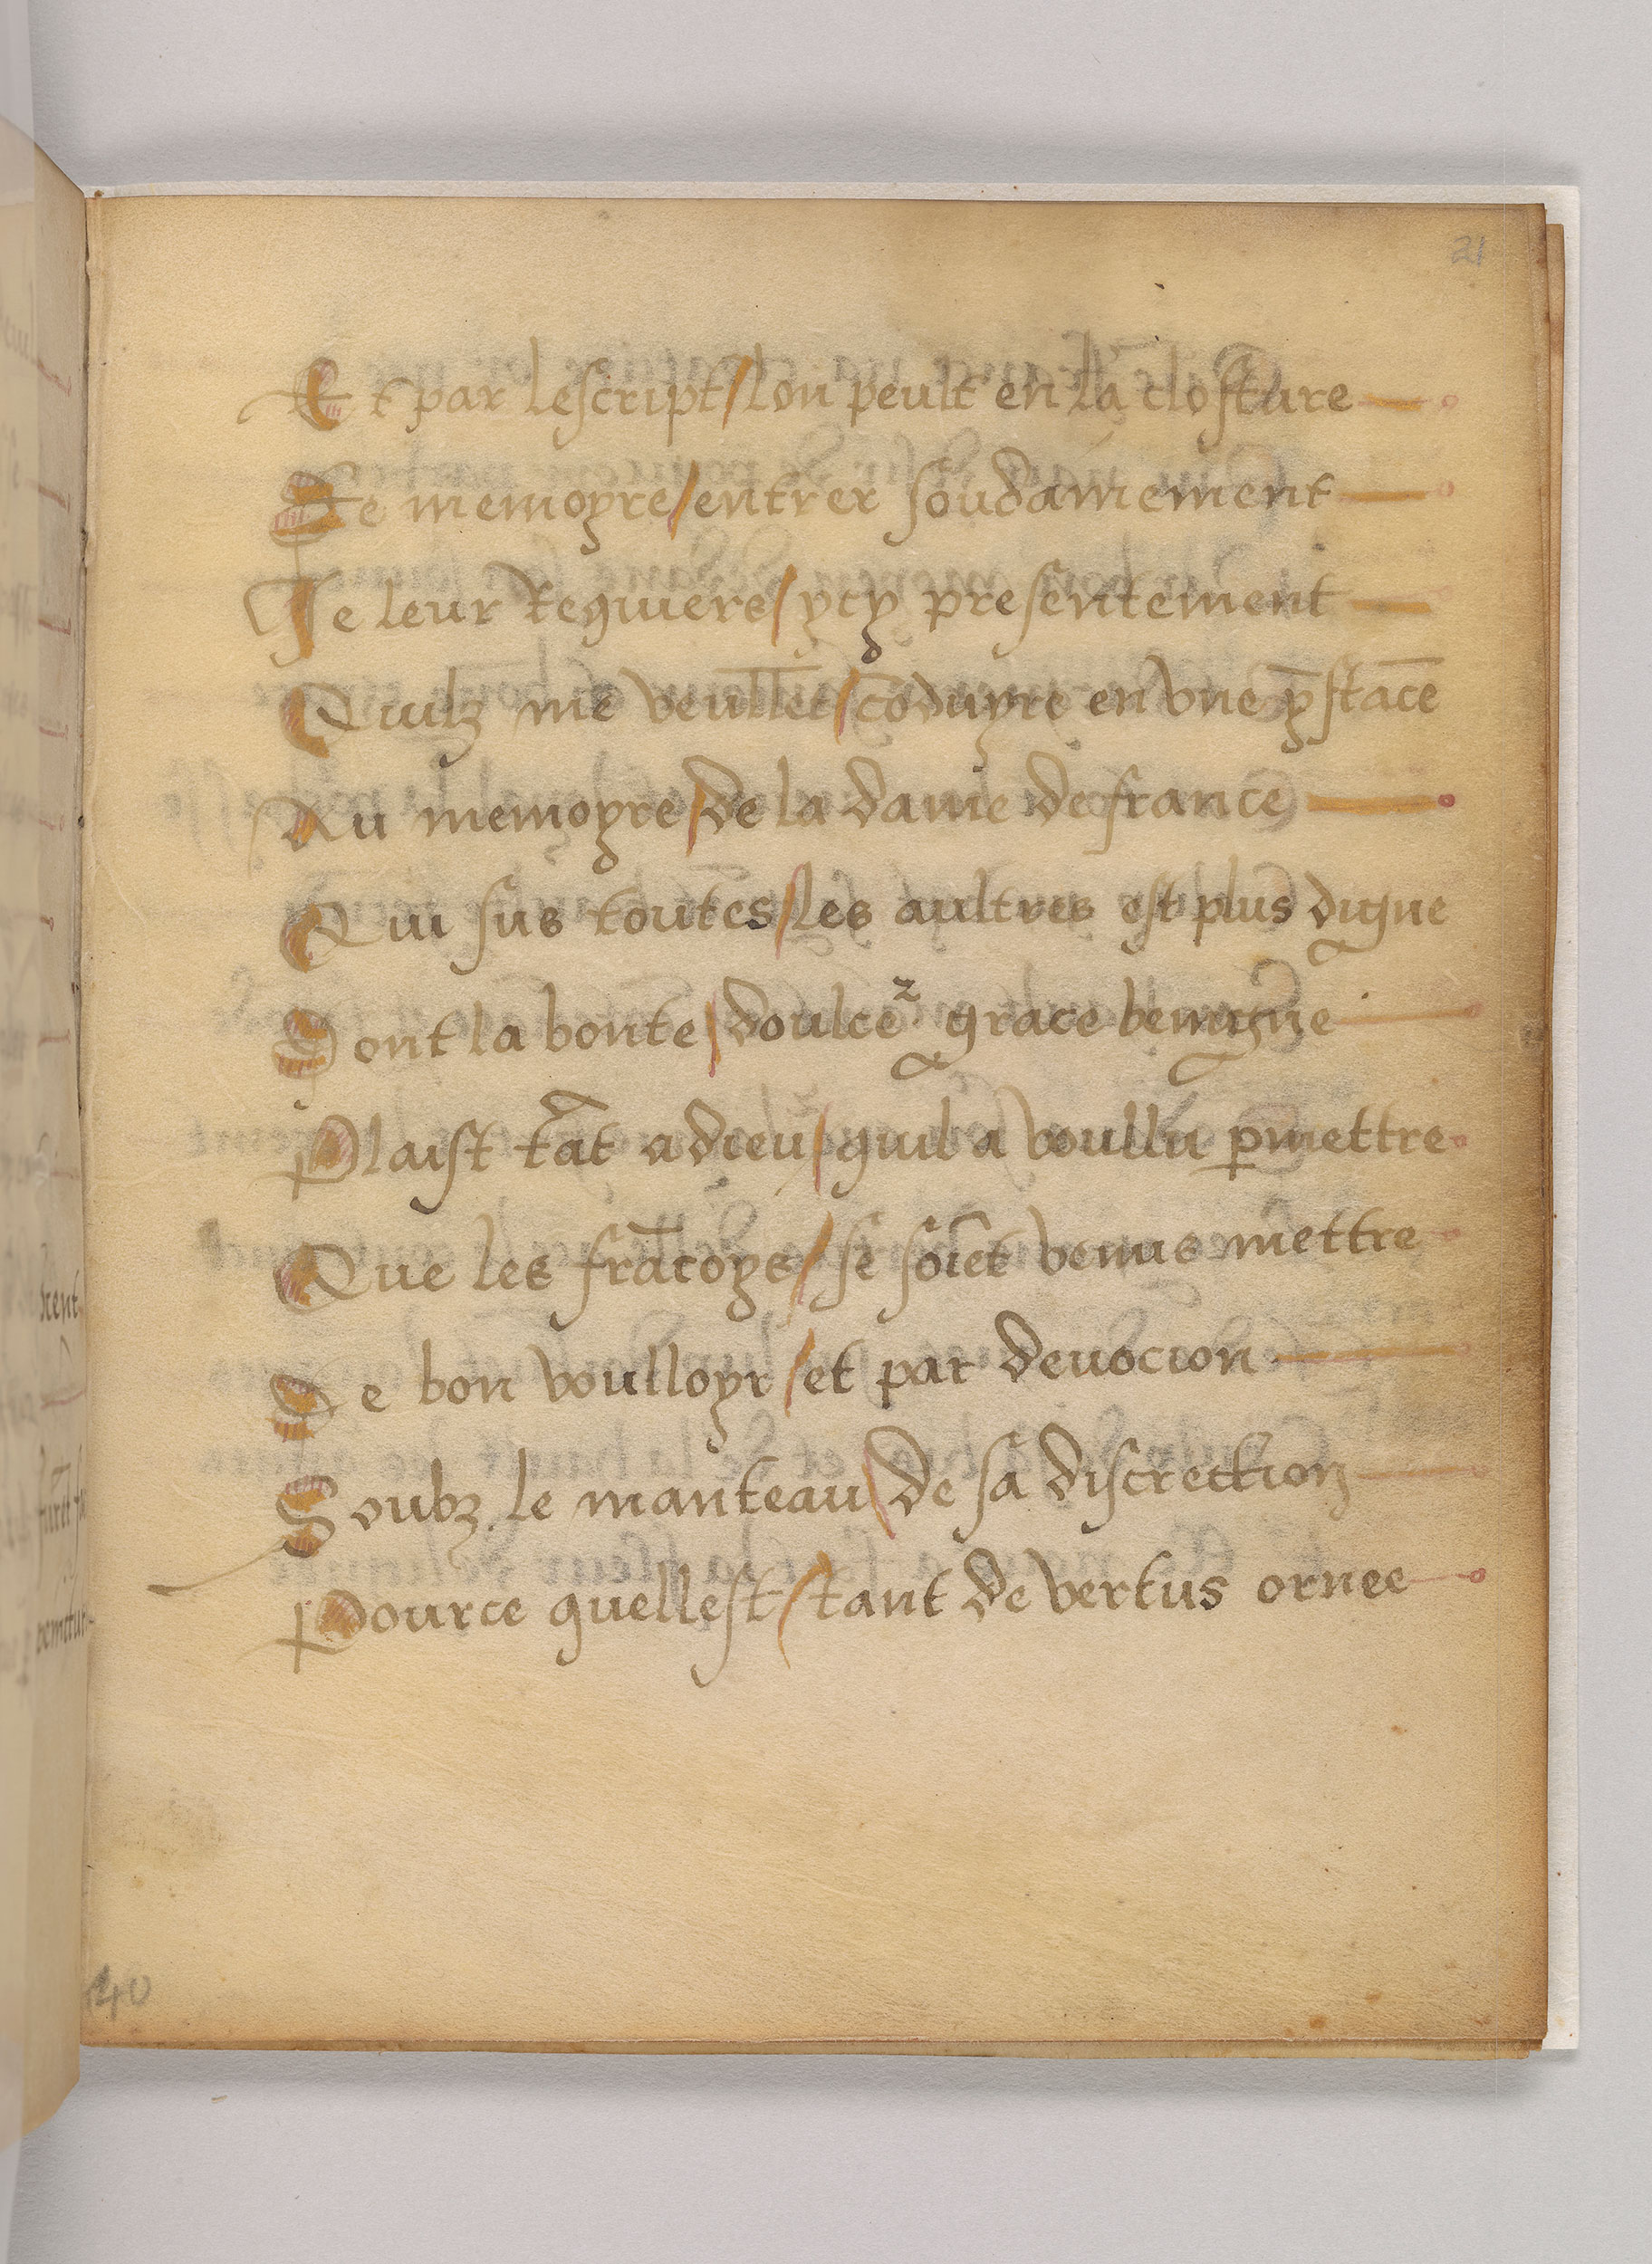 21
Et par lescript / lon peult en la closture
De memoyre / entrer soudainement
Je leur Requiere / ycy presentement
Quilz me veullēt / cōduyre en vne p̄stāce
Au memoyre / de la dame de france
Qui sus toutes / les aultres est plus digne
Dont la bonte / doulce ⁊ grace benigne
Plaist tāt a dieu / quil a voullu ꝑmettre
Que les frācoys / se soiēt venus mettre
De bon voulloyr / et par deuocion
Soubz le manteau / de sa discrection
Pource quellest / tant de vertus ornee
40